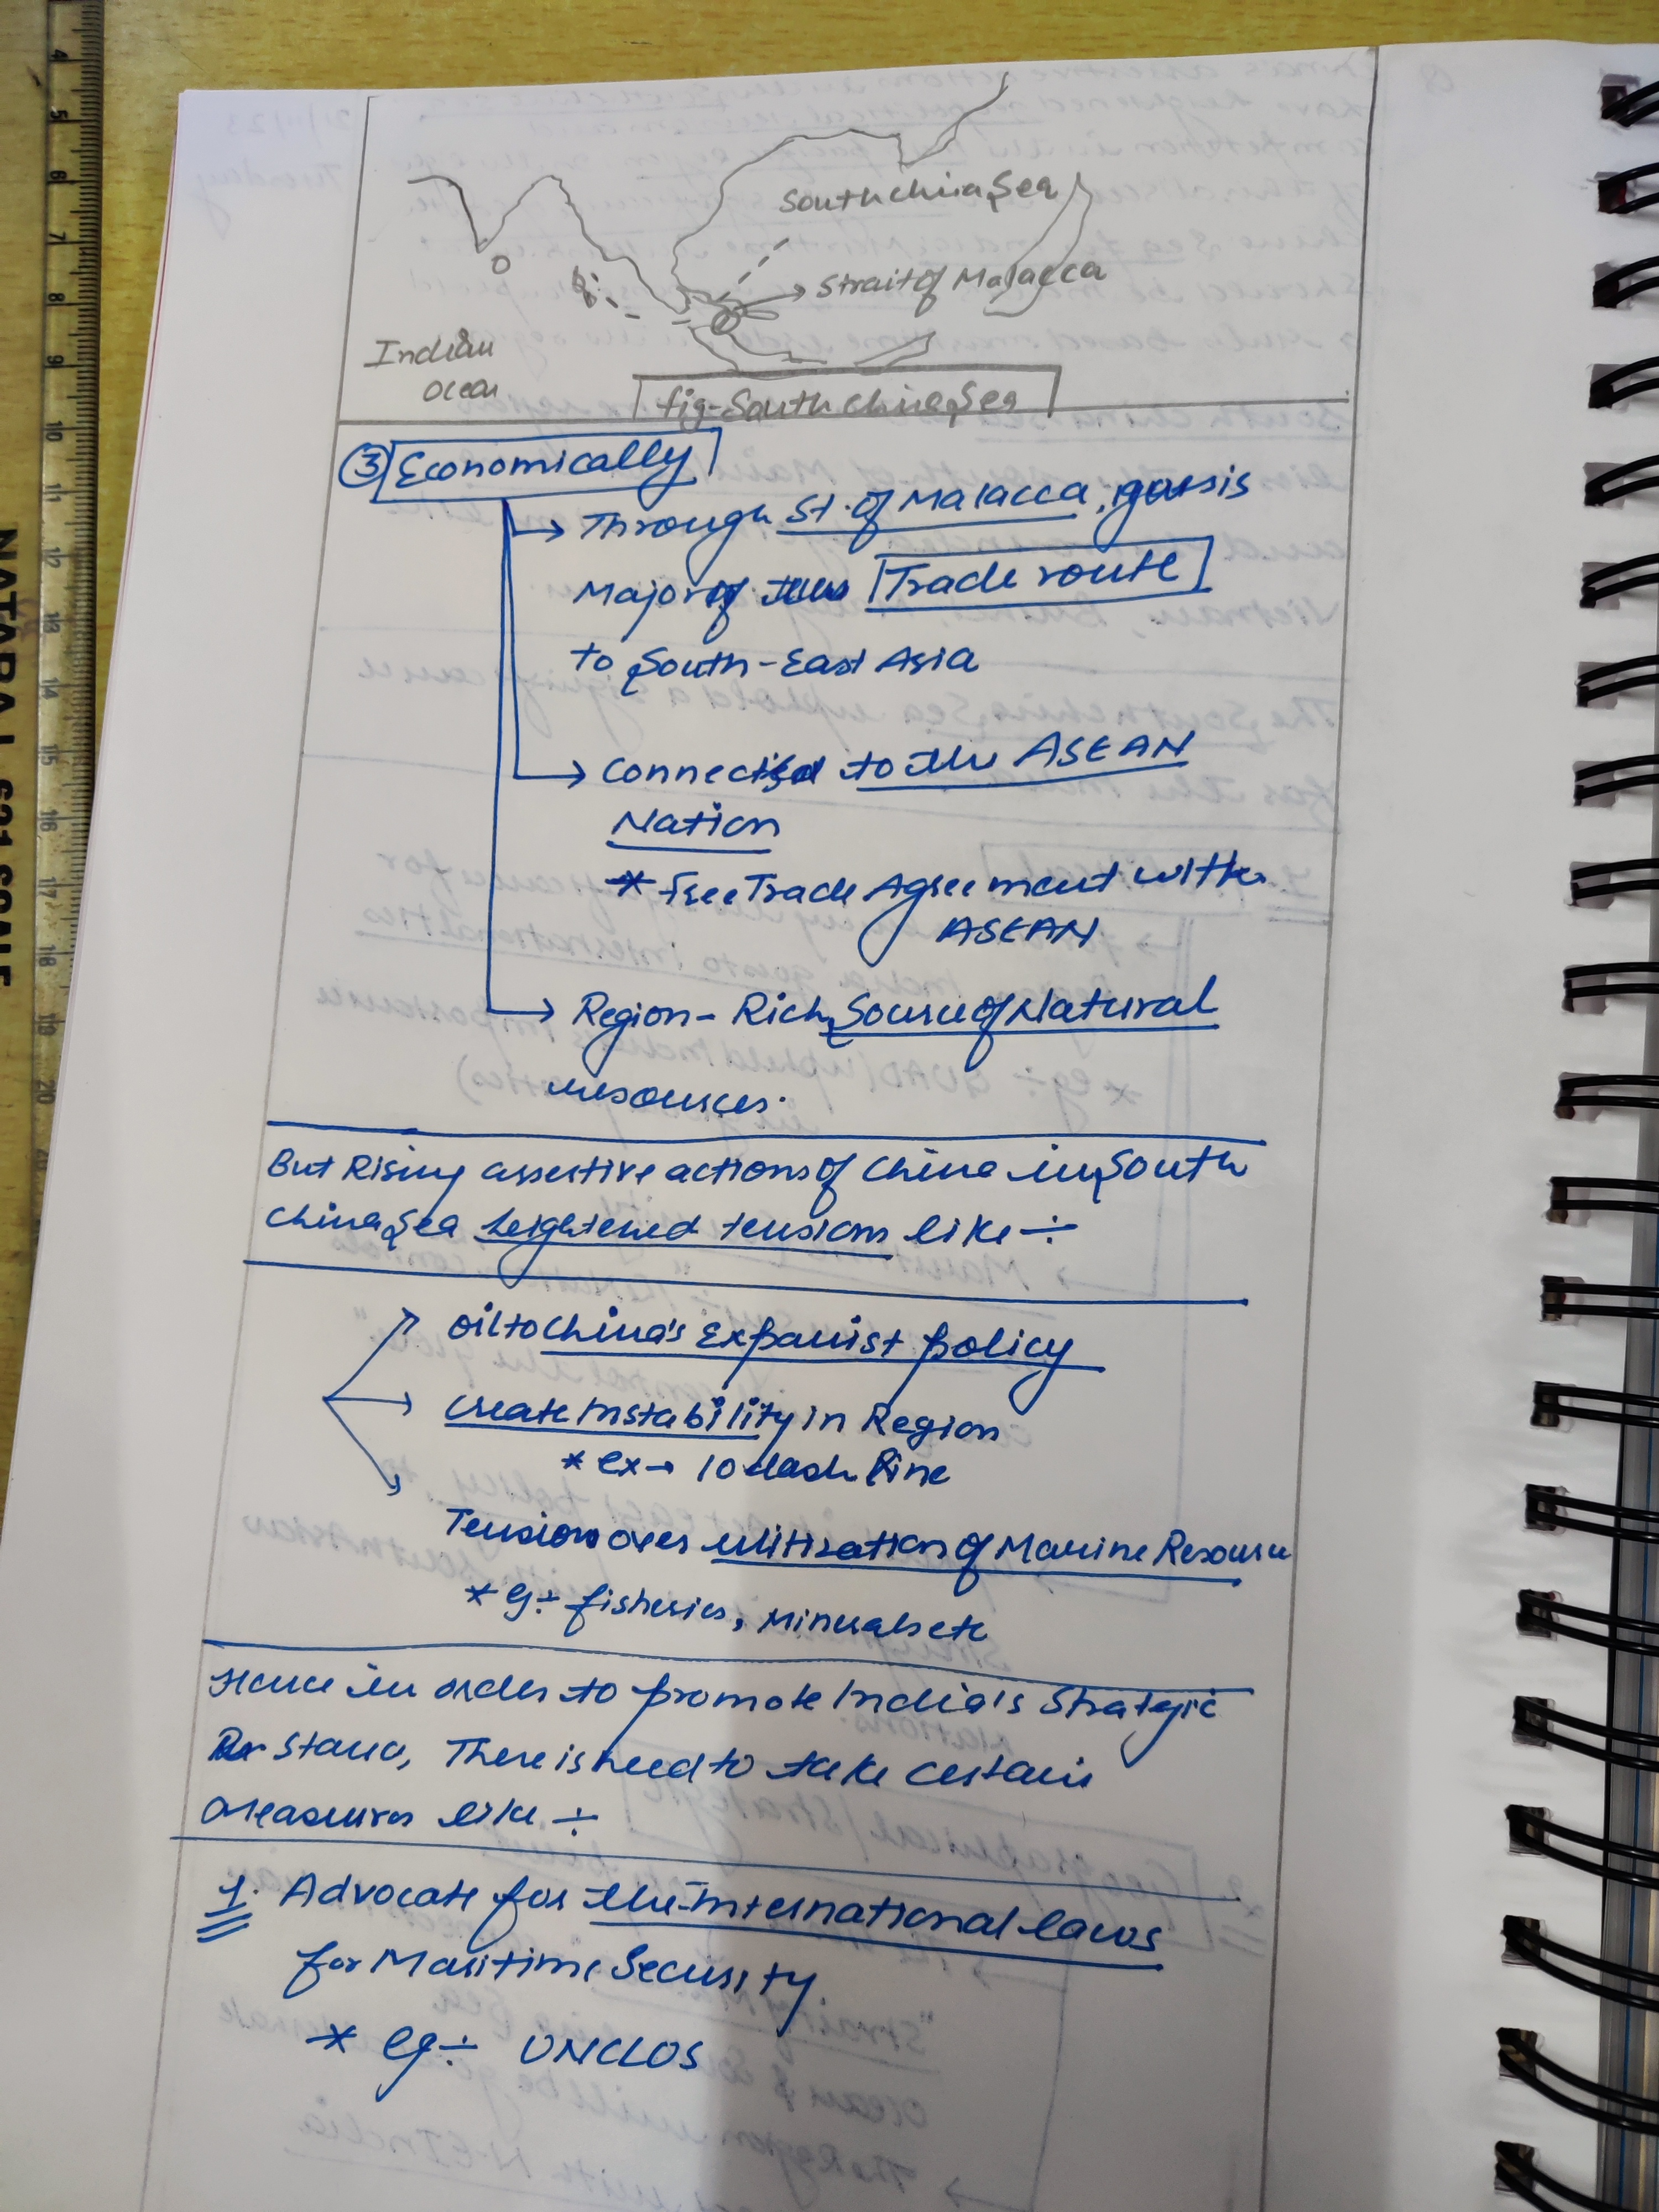 South china Sea
Strait of Malacca
Indian
Ocean
fig-South china Sea
③ Economically
→ Through St. of Malacca,
Major of the Trade route
to South-East Asia
→ Connected to the ASEAN
Nation
* Free Trade Agreement with
ASEAN
→ Region- Rich Source of Natural
resources.
But Rising assertive actions of China in South
China Sea heightened tensions like ÷
→ China's Expanist policy
→ create Instability in Region
* ex → 10 dash line
→ Tension over utilization of Marine Resource
* eg ÷ fisheries, Minerals etc
Hence in order to promote India's Strategic
Stand, There is need to take certain
Measures like ÷
1. Advocate for the International laws
for Maritime Security
* eg ÷ UNCLOS
4
5
6
7
8
9
10
11
12
13
14
15
16
17
18
19
20
NATARAJ 621 SCALE